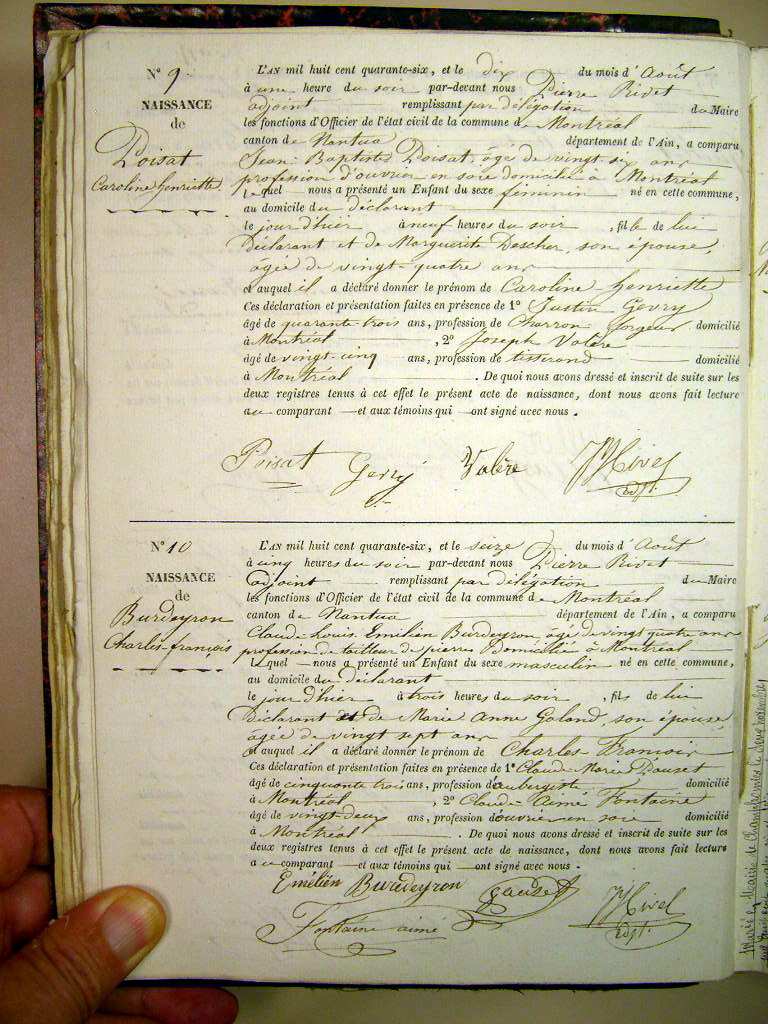 N° 9.
NAISSANCE
de
Poisat
Caroline Henriette.
L'AN mil huit cent quarante-six, et le dix du mois d'Août
à une heure du soir par-devant nous Pierre Rivet
adjoint remplissant par délégation du Maire
les fonctions d'Officier de l'état civil de la commune de Montréal
canton de Nantua département de l'Ain, a comparu
Jean-Baptiste Poisat, âgé de vingt-six ans
profession d'ouvrier en soie domicilié à Montréal
Lequel nous a présenté un Enfant du sexe féminin né en cette commune,
au domicile du déclarant
le jour d'hier à neuf heures du soir, fille de lui
Déclarant et de Marguerite Descher, son épouse,
âgée de vingt-quatre ans
et auquel il a déclaré donner le prénom de Caroline Henriette
Ces déclaration et présentation faites en présence de 1° Justin Gevry
âgé de quarante-trois ans, profession de Charron forgeur domicilié
à Montréal, 2° Joseph Valère
âgé de vingt-cinq ans, profession de tisserand domicilié
à Montréal. De quoi nous avons dressé et inscrit de suite sur les
deux registres tenus à cet effet le présent acte de naissance, dont nous avons fait lecture
au comparant et aux témoins qui ont signé avec nous.
Poisat Gevry Valère Rivet
adjt.
N° 10
NAISSANCE
de
Burdeyron
Charles-françois
L'AN mil huit cent quarante-six, et le seize du mois d'Août
à cinq heures du soir par-devant nous Pierre Rivet
adjoint remplissant par délégation du Maire
les fonctions d'Officier de l'état civil de la commune de Montréal
canton de Nantua département de l'Ain, a comparu
Claude-Louis-Emilien Burdeyron, âgé de vingt quatre ans
profession de tailleur de pierres domicilié à Montréal
Lequel nous a présenté un Enfant du sexe masculin né en cette commune,
au domicile du déclarant
le jour d'hier à trois heures du soir, fils de lui
Déclarant et de Marie Anne Goland, son épouse,
âgée de vingt sept ans
et auquel il a déclaré donner le prénom de Charles François
Ces déclaration et présentation faites en présence de 1° Claude-Marie Dauset
âgé de cinquante trois ans, profession d'aubergiste domicilié
à Montréal, 2° Claude Aimé Fontaine
âgé de vingt-deux ans, profession d'ouvrier en soie domicilié
à Montréal. De quoi nous avons dressé et inscrit de suite sur les
deux registres tenus à cet effet le présent acte de naissance, dont nous avons fait lecture
au comparant et aux témoins qui ont signé avec nous.
Emilien Burdeyron
Fontaine aimé Rivet
adjt.